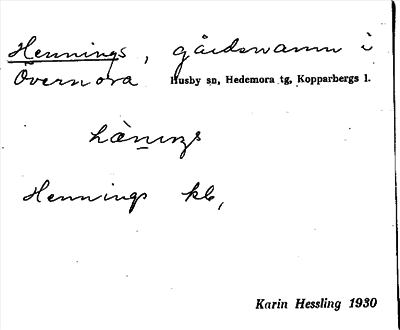 Hennings, gårdsnamn i
Övernora Husby sn, Hedemora tg, Kopparbergs l.
Hennings kb,
Karin Hessling 1930